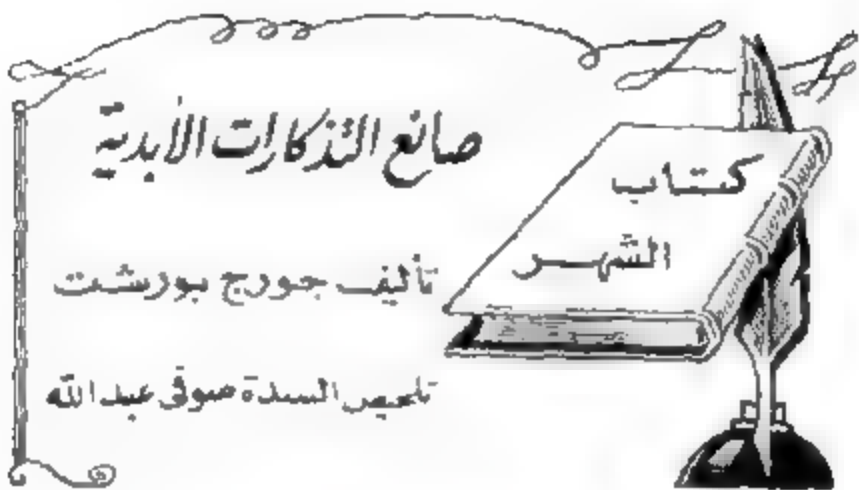 كتاب
الشهر
صانع التذكارات الأبدية
تأليف جورج بورشت
تلخيص السيدة صوفى عبد الله